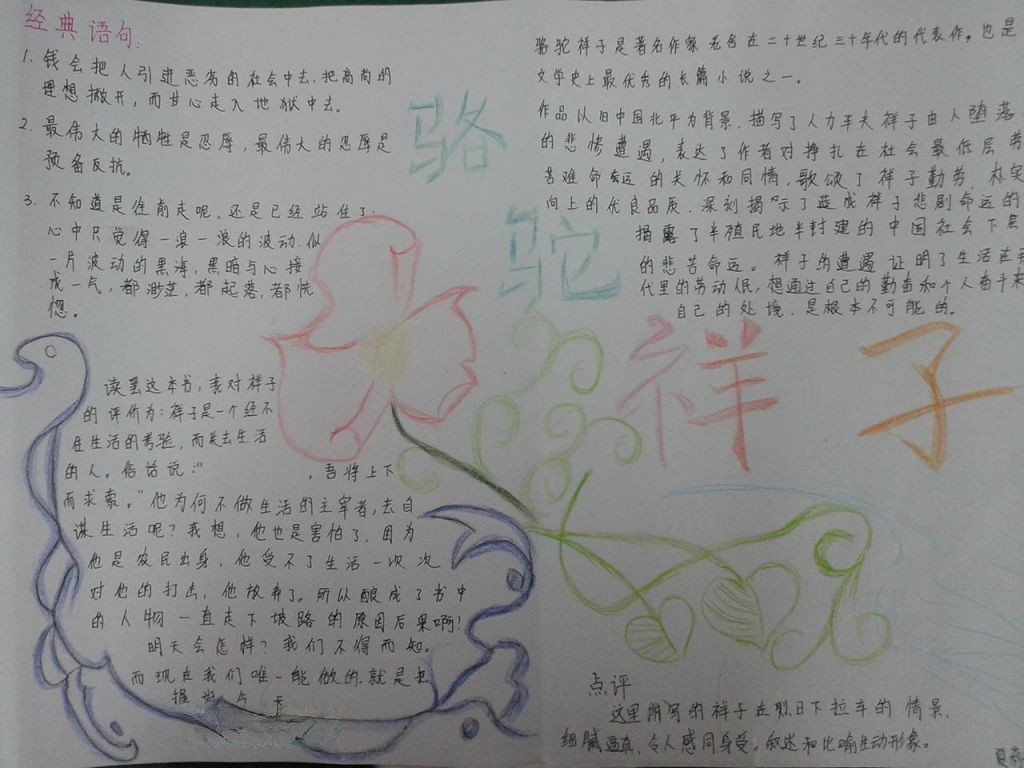 经典语句:
1. 钱会把人引进恶劣的社会中去,把高尚的
理想撇开,而甘心走入地狱中去。
2. 最伟大的牺牲是忍辱,最伟大的忍辱是
预备反抗。
3. 不知道是往前走呢,还是已经站住了,
心中只觉得一浪一浪的波动,似
一片波动的黑海,黑暗与心接
成一气,都渺茫,都起落,都恍
惚。
骆驼
祥子
骆驼祥子是著名作家老舍在二十世纪三十年代的代表作。也是
文学史上最优秀的长篇小说之一。
作品以旧中国北平为背景,描写了人力车夫祥子由人堕落
的悲惨遭遇,表达了作者对挣扎在社会最低层劳
苦难命运的关怀和同情,歌颂了祥子勤劳、朴实
向上的优良品质,深刻揭示了造成祥子悲剧命运的
揭露了半殖民地半封建的中国社会下层
的悲苦命运。祥子的遭遇证明了生活在
代里的劳动人民,想通过自己的勤苦和个人奋斗来
自己的处境,是根本不可能的。
读罢这本书,我对祥子
的评价为:祥子是一个经不
住生活的考验,而失去生活
的人。俗话说:“ ,吾将上下
而求索。”他为何不做生活的主宰者,去自
谋生活呢?我想,他也是害怕了,因为
他是农民出身,他受不了生活一次次
对他的打击,他放弃了。所以酿成了书中
的人物一直走下坡路的原因后果啊!
明天会怎样?我们不得而知。
而现在我们唯一能做的就是
握 今天
点评
这里所写的祥子在烈日下拉车的情景,
细腻逼真,令人感同身受。叙述和比喻生动形象。
夏